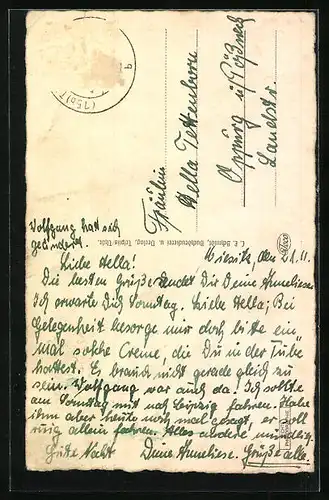 (15b) T
9
Fräulein
Hella Tettenborn
Oppurg ü/Pößneck
Landstr.
C. F. Schmidt, Buchdruckerei u. Verlag, Triptis Thür.
Wolfgang hat sich
geändert.
, den 21.11.
Liebe Hella!
Die besten Grüße sendet Dir Deine Anneliese.
Ich erwarte Dich Sonntag. Liebe Hella; Bei
Gelegenheit besorge mir doch bitte ein
mal solche Creme, die Du in der Tube
hattest. Es brauch nicht gerade gleich zu
sein. Wolfgang war auch da! Ich sollte
am Sonntag mit nach Leipzig fahren. Habe
ihm aber heute noch mal gesagt, er soll
ruhig allein fahren. Alles andere mündlich.
Gute Nacht Deine Anneliese. Grüße alle.